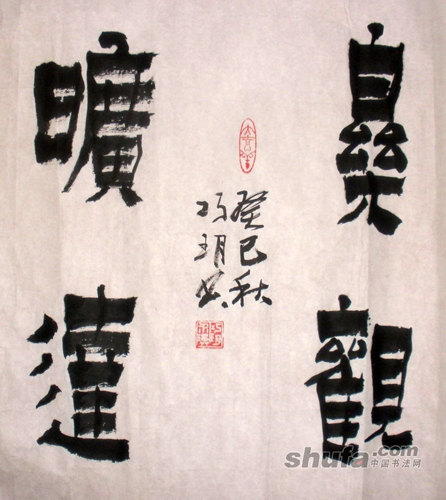 樂觀
癸巳秋
玥书
曠達
shufa.com
中国书法网